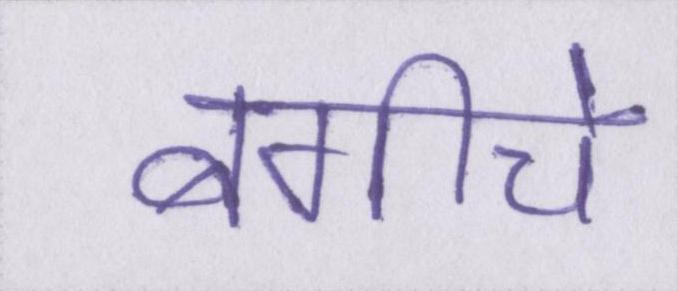 बगीचे